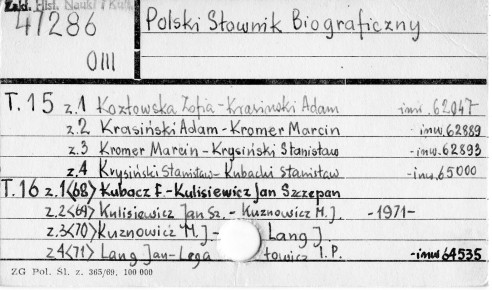 Zakł. Hist. Nauki i Kult.
47286
Polski Słownik Biograficzny
OIII
T. 15 z.1 Kozłowska Zofia - Krasiński Adam - inw. 62047
z.2 Krasiński Adam - Kromer Marcin - inw. 62889
z.3 Kromer Marcin - Krysiński Stanisław - inw. 62893
z.4 Krysiński Stanisław - Kubacki Stanisław - inw. 65000
T. 16 z.1<68> Kubacz F. - Kulisiewicz Jan Szczepan
z.2<69> Kulisiewicz Jan Sz. - Kuznowicz M.J. -1971-
z.3<70> Kuznowicz M.J. - Lang J.
z.4<71> Lang Jan - Lega towicz I.P. - inw 64535
ZG Pol. Śl. z. 365/69. 100 000